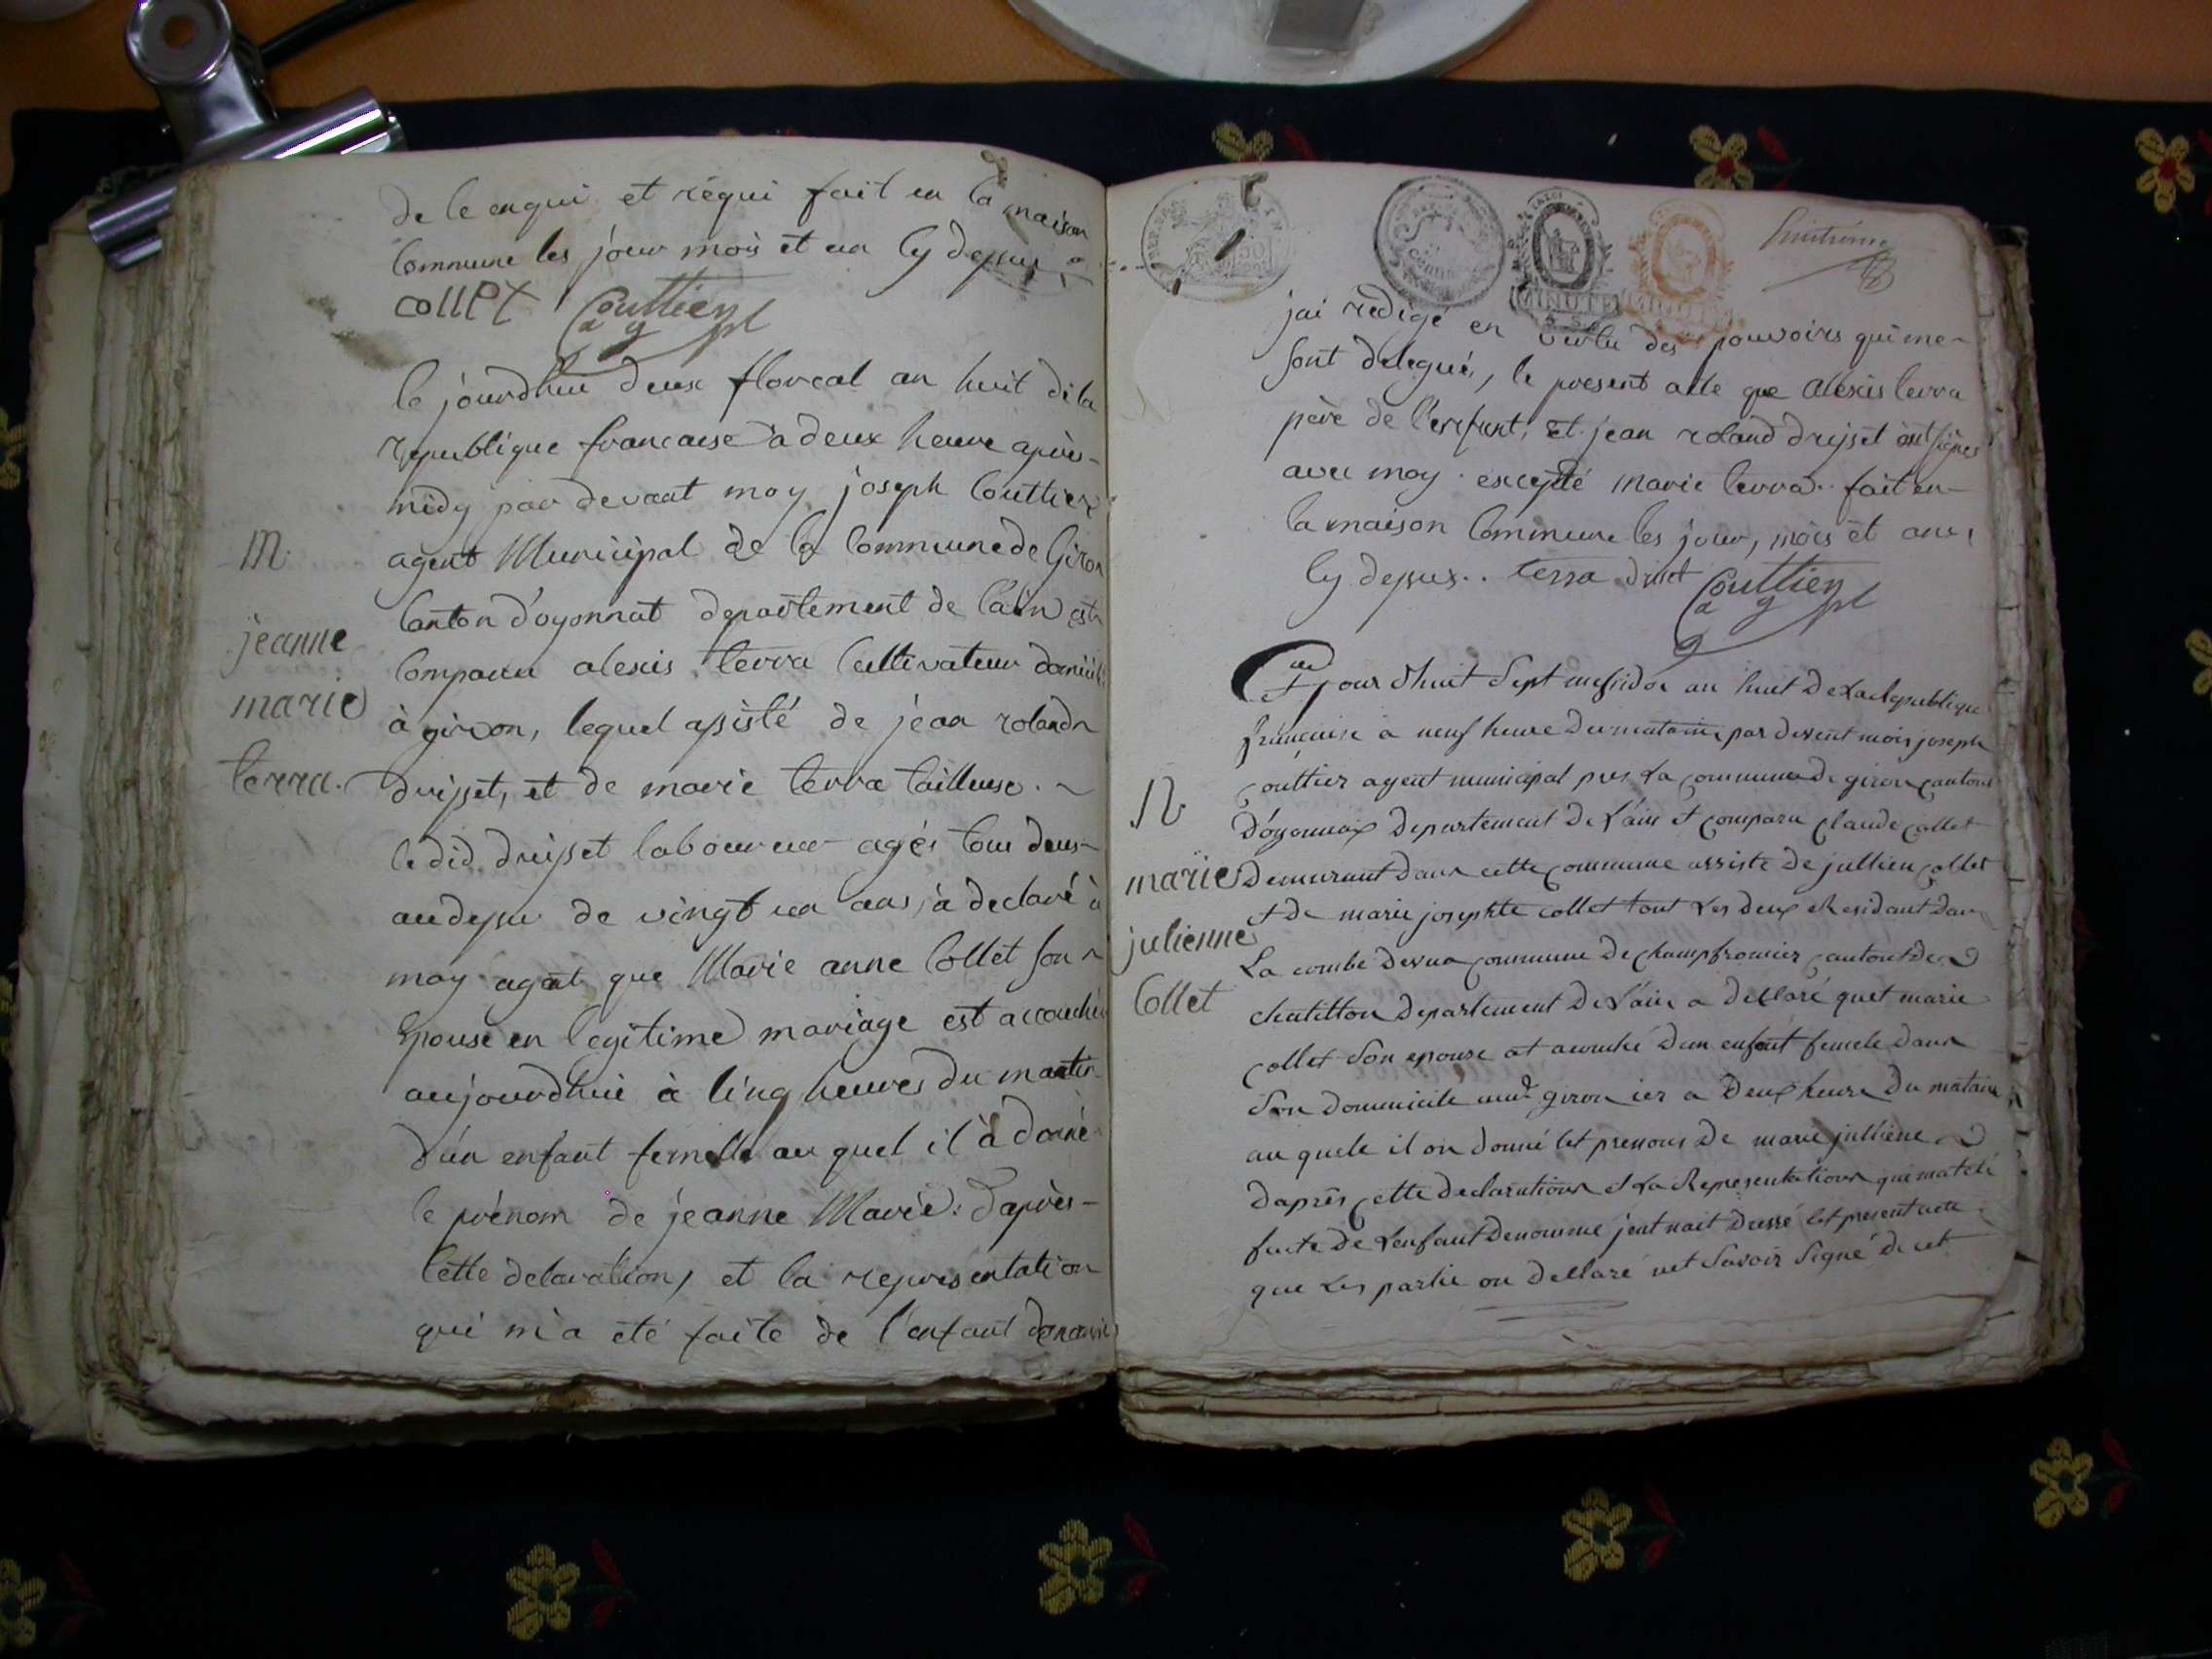 de le enqui et requi fait en la maison
Commune les jour mois et an Cy dessus
collet Couttier
ag pl
le jourdhui deux floreal an huit de la
republique francaise a deux heure apres-
midy par devant moy joseph Couttier
N
agent Municipal de la Commune de Giron
Canton d'oyonnat departement de l'ain est
jeanne
marie
terra.
Comparu alexis terra Cultivateur domicil
à giron, lequel assisté de jean roland
druisset, et de marie terra tailleuse.
le did druisset laboureur agés tous deux
audessu de vingt un ans, à declaré à
moy agent que Marie anne Collet son
Epouse en legitime mariage est accouchée
aujourdhui à Cinq heures du matin
d'un enfant femelle au quel il à donné
le prénom de jeanne Marie: d'après-
Cette delaration, et la representation
qui m'a été faite de l'enfant denommé
huitieme
50
CENT
MINUTE
jai redigé en vertu des pouvoirs qui me-
sont delegué, le present acte que alexis terra
père de l'enfant, et jean roland druisset ont signes
avec moy. excepté marie terra. fait en-
la maison Commune les jour, mois et an,
Cy dessus.. terra druset Couttier
ag pl
Cejour dhuit Sept messidor an huit de La Republique
française a neuf heure du matain par devent mois joseph
Couttier agent municipal pres La Commune de giron Canton
N
D'oyonnax Departement de L'ain et Comparu Claude Collet
marie
julienne
Collet
Demeurant dans cette Commune assiste de jullien Collet
et de marie josephte collet tout Les deux Residant dans
La combe d'evua Commune de Champfromier Canton de
chatillon Departement de L'ain a declaré quet marie
Collet son epouse at acouché d'un enfant femele dans
son domicile giron ier a Deux heure du matain
au quele il on donné let prenons De marie julliene
daprês cette declaration et La Representation qui mat été
faite de Lenfant denommé jent nait Dressé let present acte
que Les partie on dellaré net Savoir Signé de cet